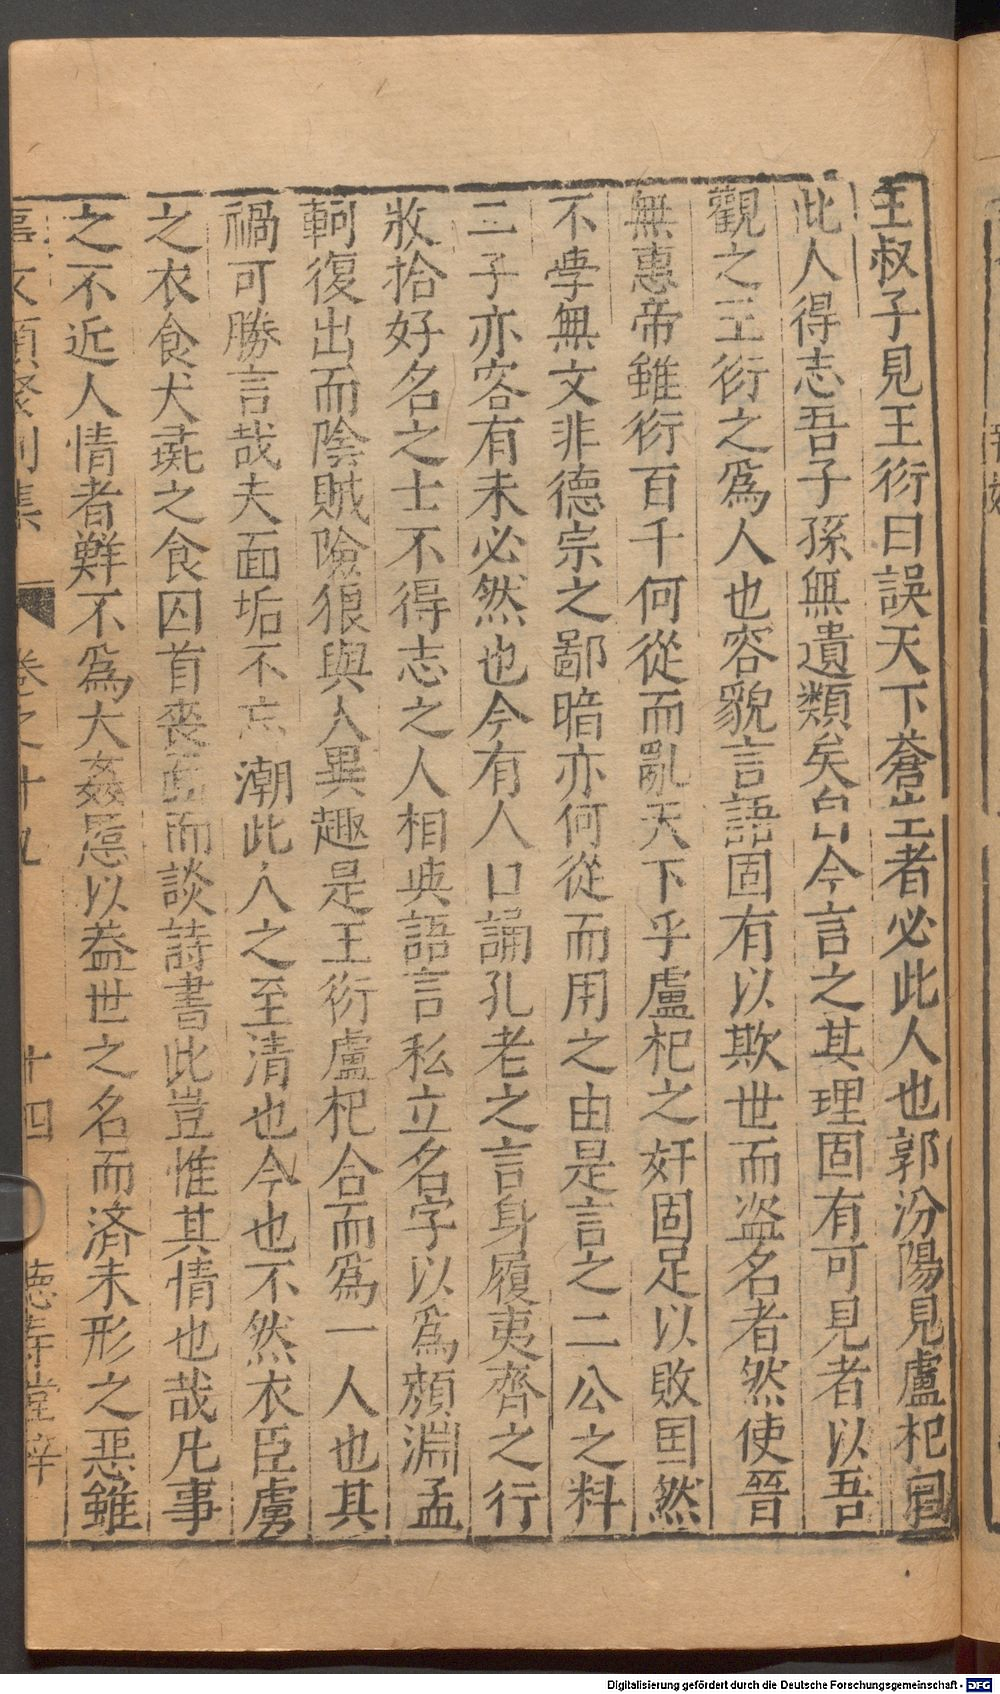 王叔子見王衍曰誤天下蒼生者必此人也郭汾陽見盧杞曰
此人得志吾子孫無遺類矣自今言之其理固有可見者以吾
觀之王衍之爲人也容貌言語固有以欺世而盜名者然使晉
無惠帝雖衍百千何從而亂天下乎盧杞之奸固足以敗国然
不學無文非德宗之鄙暗亦何從而用之由是言之二公之料
二子亦容有未必然也今有人口誦孔老之言身履夷齊之行
收拾好名之士不得志之人相與語言私立名字以爲顏淵孟
軻復出而陰賊險狠與人異趣是王衍盧杞合而爲一人也其
禍可勝言哉夫面垢不忘澣此人之至清也今也不然衣臣虜
之衣食犬彘之食囚首喪面而談詩書此豈惟其情也哉凡事
之不近人情者鮮不爲大姦慝以蓋世之名而済未形之惡雖
事文類聚別集 卷之十九 十四 德壽堂梓
Digitalisierung gefördert durch die Deutsche Forschungsgemeinschaft - DFG